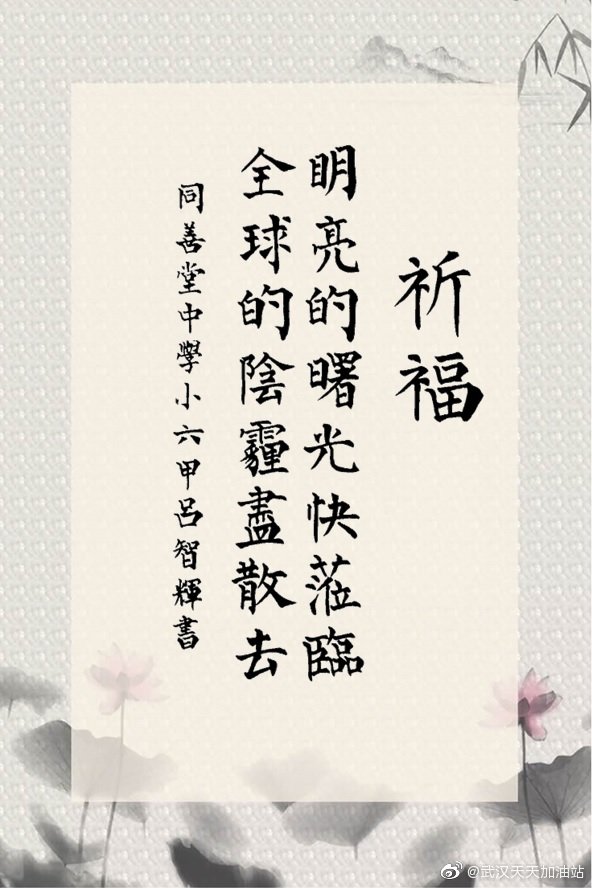 祈福
明亮的曙光快蒞臨
全球的陰霾盡散去
同善堂中學小六甲呂智輝書
@武汉天天加油站